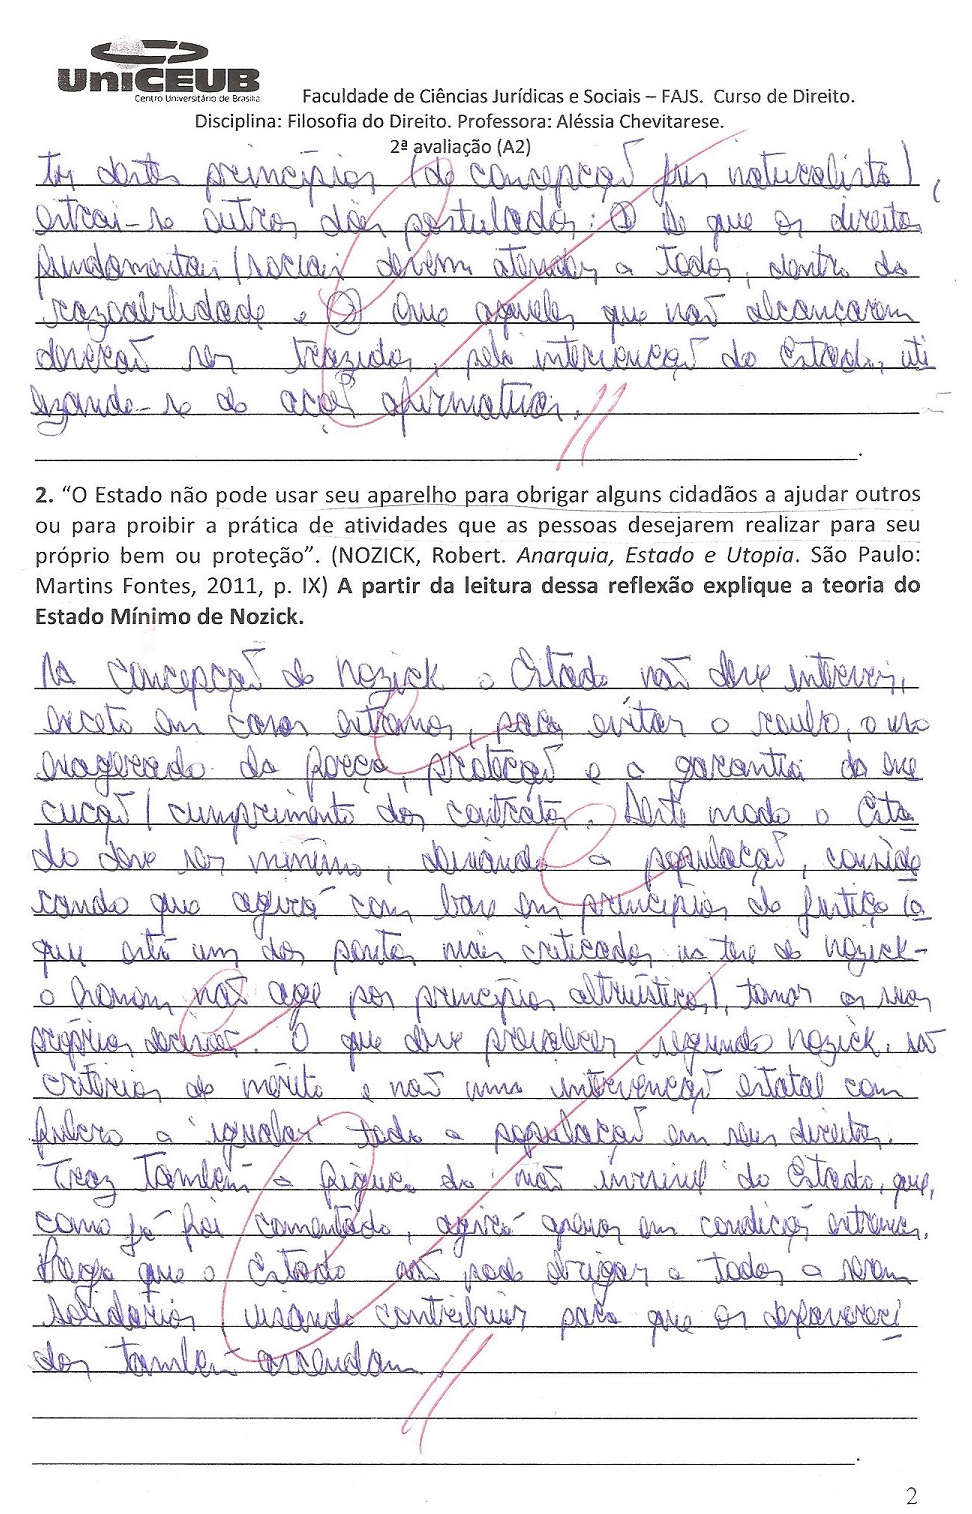 UniCEUB
Centro Universitário de Brasília
Faculdade de Ciências Jurídicas e Sociais – FAJS. Curso de Direito.
Disciplina: Filosofia do Direito. Professora: Aléssia Chevitarese.
2ª avaliação (A2)
tir destes princípios (de concepção jus naturalista),
extrai-se outros dois postulados: ① De que os direitos
fundamentais/sociais devem atender a todos, dentro da
razoabilidade e ② Que aqueles que não alcançarem
deverão ser trazidos, pela intervenção do Estado, uti
lizando-se de ações afirmativas.
2. “O Estado não pode usar seu aparelho para obrigar alguns cidadãos a ajudar outros
ou para proibir a prática de atividades que as pessoas desejarem realizar para seu
próprio bem ou proteção”. (NOZICK, Robert. Anarquia, Estado e Utopia. São Paulo:
Martins Fontes, 2011, p. IX) A partir da leitura dessa reflexão explique a teoria do
Estado Mínimo de Nozick.
Na concepção de Nozick o Estado não deve intervir,
exceto em casos extremos, para evitar o roubo, o uso
exagerado da força, proteção e a garantia da exe
cução/cumprimento dos contratos. Deste modo o Esta
do deve ser mínimo, deixando a população, conside
rando que agirá com base em princípios de justiça (a
que está um dos pontos mais criticados na tese de Nozick-
o homem não age por princípios altruísticos), tomar as suas
próprias decisões. O que deve prevalecer, segundo Nozick, são
critérios de mérito e não uma intervenção estatal com
fulcro a 'igualar' toda a população em seus direitos.
Traz também a figura da 'mão invisível' do Estado, que,
como já foi comentado, agirá apenas em condições extremas.
Prega que o Estado não pode obrigar a todos a serem
solidários, visando contribuir para que os desfavoreci
dos também ascendam.
2